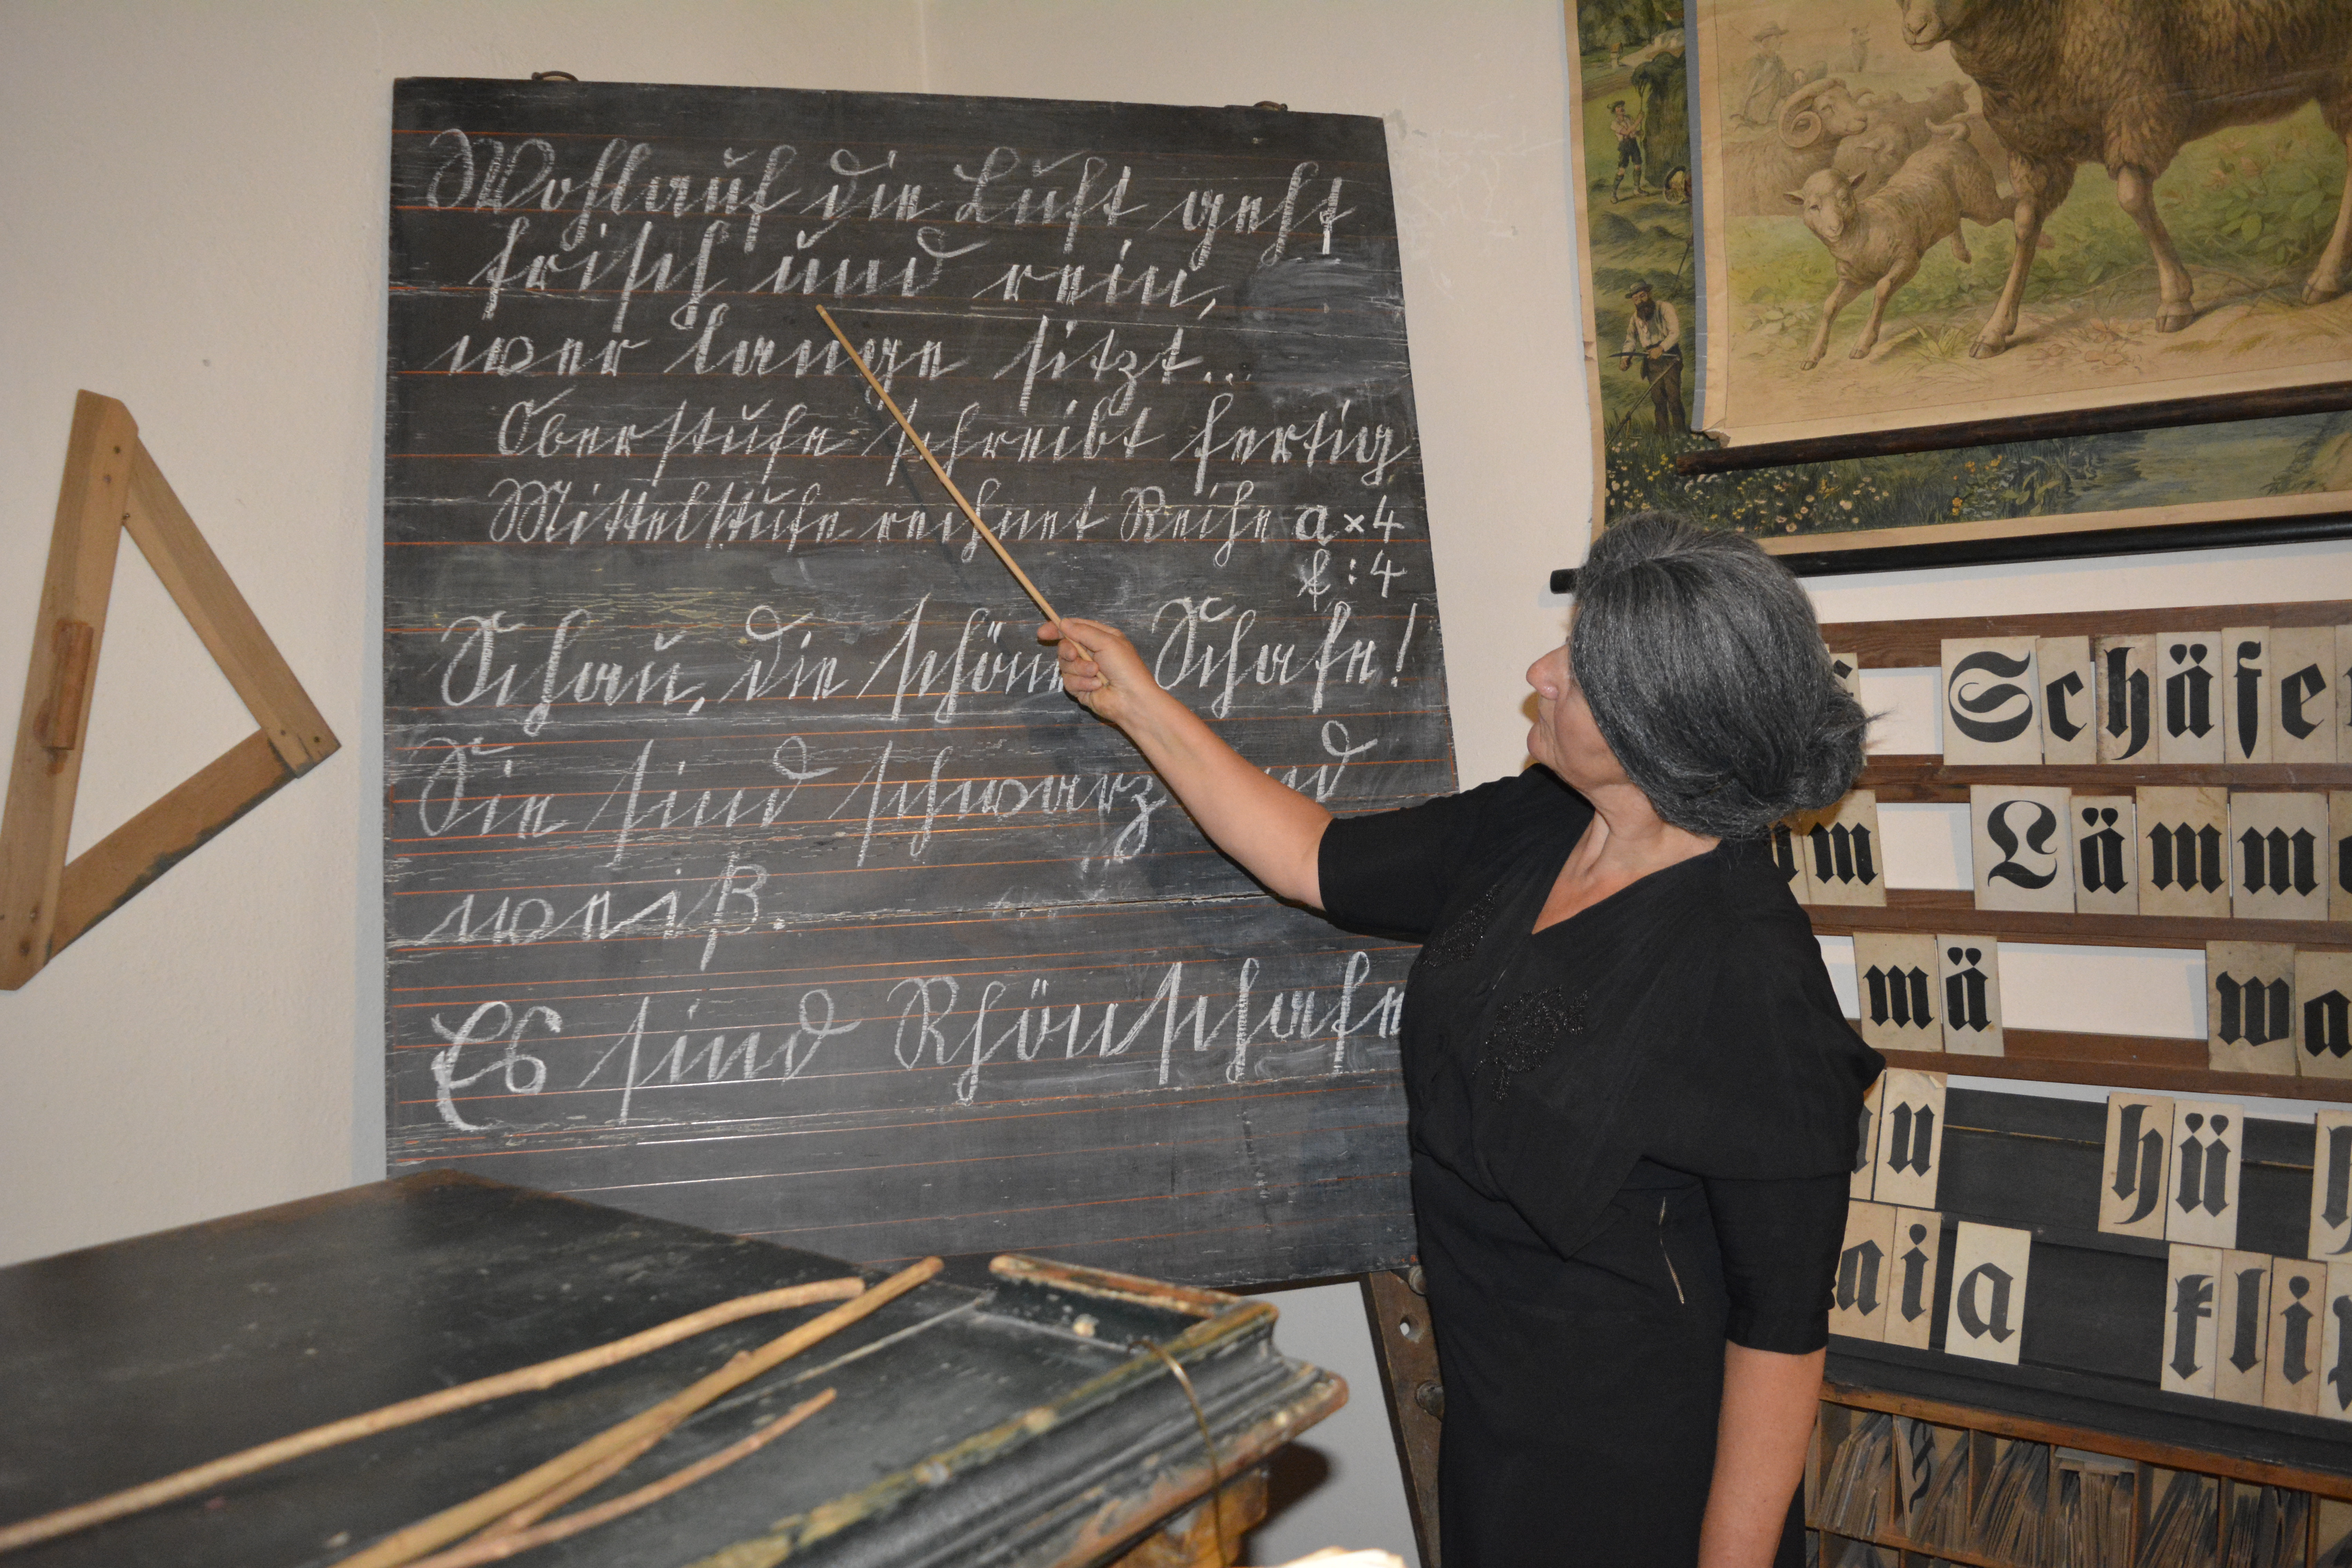 Wohlauf die Luft geht
frisch und rein,
wer lange sitzt...
Oberstufe schreibt fertig
Mittelstufe rechnet Reihe a×4
: 4
Schau, die schönen Schafe!
Sie sind schwarz und
weiß.
Es sind Rhönschafe
Schäfe
m Lämm
mä wa
u hü
ai a kli